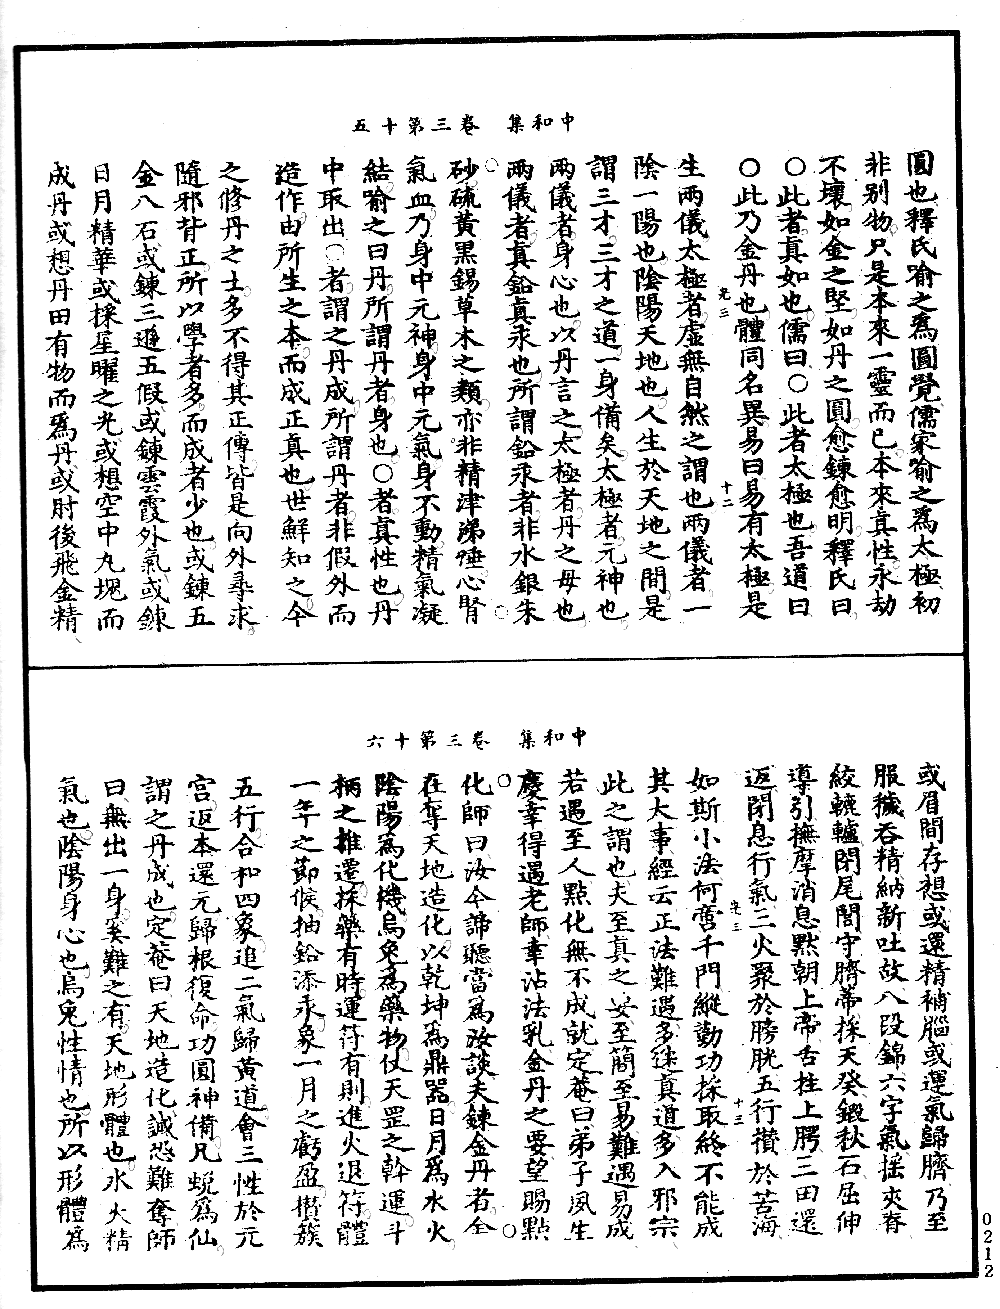 中和集　卷三第十五
圓也釋氏喻之爲圓覺儒家喻之爲太極初
非別物只是本來一靈而已本來真性永劫
不壞如金之堅如丹之圓愈鍊愈明釋氏曰
○此者真如也儒曰○此者太極也吾道曰
○此乃金丹也體同名異易曰易有太極是
十二
生兩儀太極者虛無自然之謂也兩儀者一
陰一陽也陰陽天地也人生於天地之間是
謂三才三才之道一身備矣太極者元神也
兩儀者身心也以丹言之太極者丹之母也
兩儀者真鉛真汞也所謂鉛汞者非水銀朱
砂硫黃黑錫草木之類亦非精津涕唾心腎
氣血乃身中元神身中元氣身不動精氣凝
結喻之曰丹所謂丹者身也○者真性也丹
中取出○者謂之丹成所謂丹者非假外而
造作由所生之本而成正真也世鮮知之今
之修丹之士多不得其正傳皆是向外尋求
隨邪背正所以學者多而成者少也或鍊五
金八石或鍊三遜五假或鍊雲霞外氣或鍊
日月精華或採星曜之光或想空中丸塊而
成丹或想丹田有物而爲丹或肘後飛金精
中和集　卷三第十六
或眉間存想或還精補腦或運氣歸臍乃至
服穢吞精納新吐故八段錦六字氣搖夾脊
絞轆轤閉尾閭守臍蒂採天癸鍛秋石屈伸
導引撫摩消息默朝上帝舌拄上腭三田還
返閉息行氣三火聚於膀胱五行攢於苦海
十三
如斯小法何啻千門縱勤功採取終不能成
其大事經云正法難遇多迷真道多入邪宗
此之謂也夫至真之要至簡至易難遇易成
若遇至人點化無不成就定菴曰弟子夙生
慶幸得遇老師幸沾法乳金丹之要望賜點
化師曰汝今諦聽當爲汝談夫鍊金丹者全
在奪天地造化以乾坤爲鼎器日月爲水火
陰陽爲化機烏兔爲藥物仗天罡之斡運斗
柄之推遷採藥有時運符有則進火退符體
一年之節候抽鉛添汞象一月之虧盈攢簇
五行合和四象追二氣歸黃道會三性於元
宮返本還元歸根復命功圓神備凡蛻爲仙
謂之丹成也定菴曰天地造化誠恐難奪師
曰無出一身奚難之有天地形體也水火精
氣也陰陽身心也烏兔性情也所以形體爲
0212